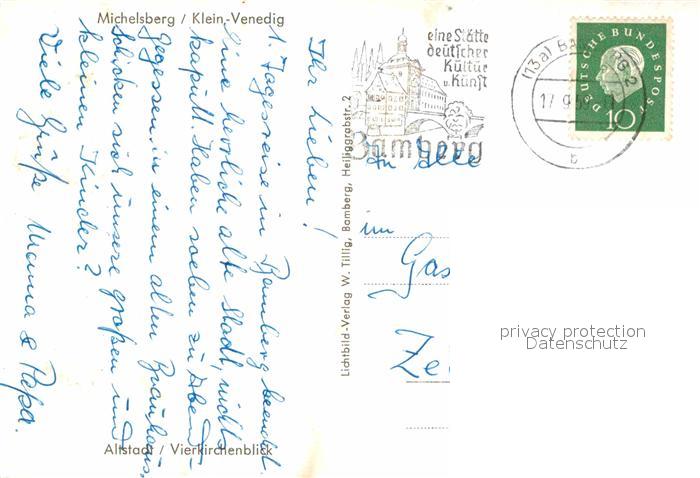 Michelsberg / Klein-Venedig
Ihr Lieben!
1. Tagesreise in Bamberg beendet.
Eine herrliche alte Stadt, nichts
kaputt. Haben soeben zu Abend-
gegessen in einem alten Brauhaus.
Schicken sich unsere großen und
kleinen Kinder?
Viele Grüße Mama & Papa.
Altstadt / Vierkirchenblick
Lichtbild-Verlag W. Tillig, Bamberg, Heiliggrabstr. 2
eine Stätte
deutscher
Kultur
u. Kunst
Bamberg
(13a) BAMBERG 2
17.9.5
b
DEUTSCHE BUNDESPOST
10
An Alle
im
Gas
Ze
privacy protection
Datenschutz